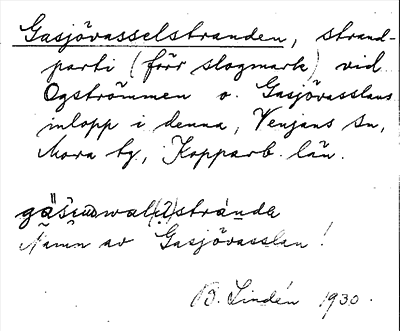 Gasjövasselstranden, strand-
parti (förr slogmark) vid
Ogströmmen o. Gasjövasslans
inlopp i denna, Venjans sn,
Mora tg, Kopparb. län.
Namn av Gasjövasslan!
B. Lindén 1930.